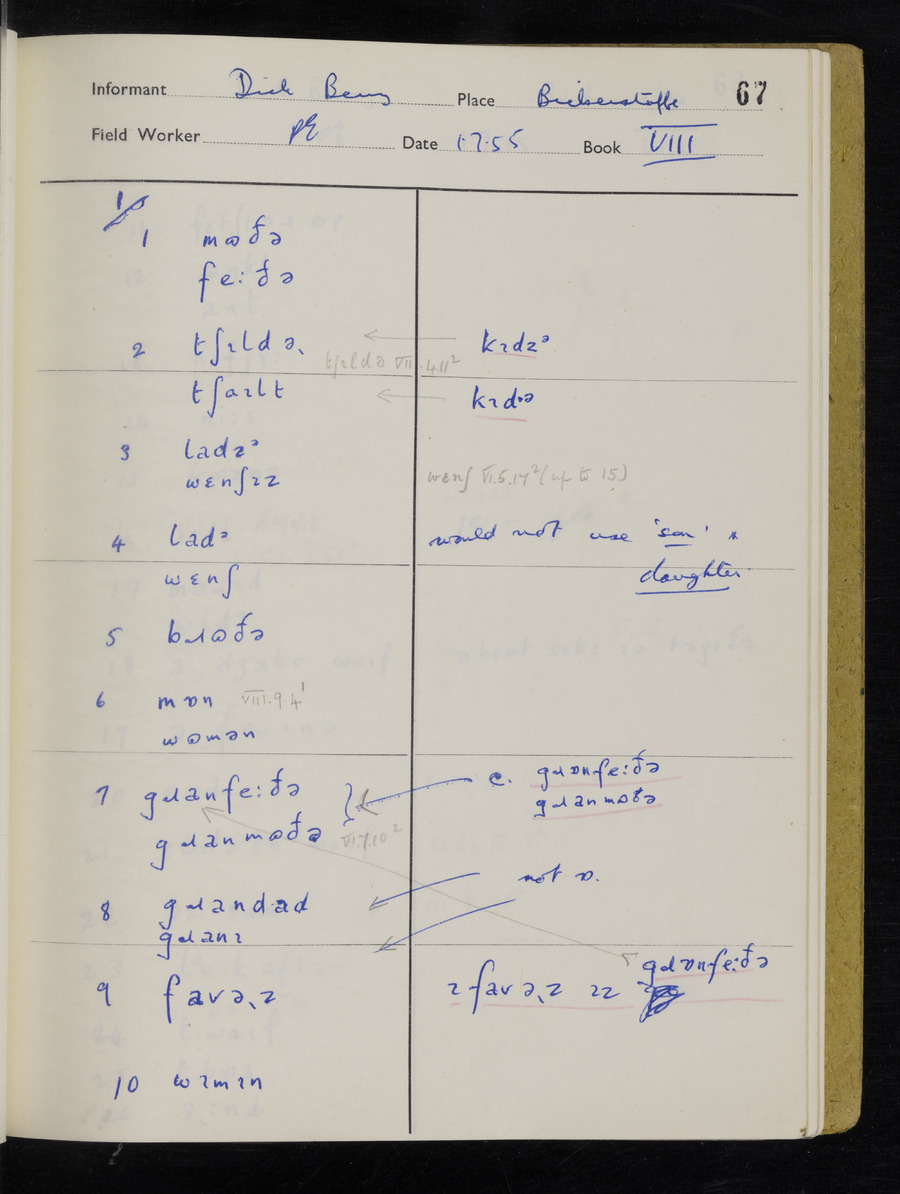 Informant Dick Berry Place 67
Field Worker PE Date 1.7.55 Book VIII
1
1 mɷðə
fe:ðə
2 tʃɪldə kɪdz
tʃɪldə VII.4.11²
tʃaɪlt kɪd
3 ladz
wɛnʃɪz wɛnʃ VI.5.17² (up to 15)
4 lad would not use 'son' &
wɛnʃ daughter
5 bɹɷðə
6 mɒn VIII.9.4¹
wɷmən
7 gɹanfe:ðə e. gɹɒnfe:ðə
gɹanmɷðə VI.7.10² gɹanmɷðə
not ɒ.
8 gɹandad
gɹanɪ
9 favə,z ɪ favə,z ɪz gɹɒnfe:ðə
10 wɪmɪn